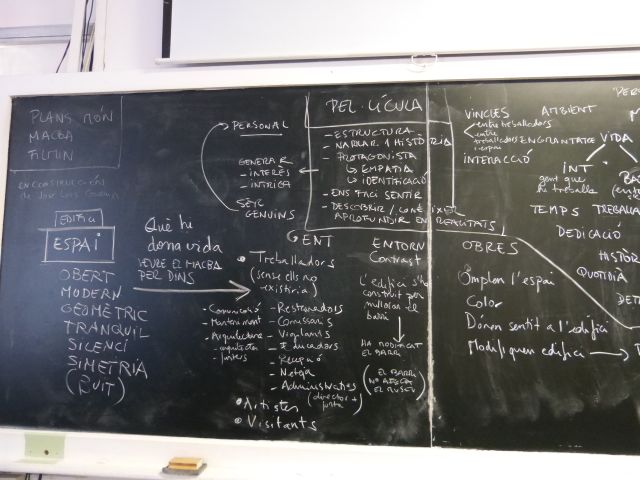 PLANS MÓN
MACBA
FILMIN
EN CONSTRUCCIÓN
de José Luis
EDIFICI
ESPAI
OBERT
MODERN
GEOMÈTRIC
TRANQUIL
SILENCI
SIMETRIA
(BUIT)
Què hi
dona vida
VEURE EL MACBA
PER DINS
PERSONAL
GENERAR
- INTERÈS
- INTRIGA
SER
GENUINS
PEL·LÍCULA
- ESTRUCTURA
- NARRAR 1 HISTÒRIA
- PROTAGONISTA
↳ EMPATIA
↳ IDENTIFICACIÓ
- ENS FACI SENTIR
- DESCOBRIR / CONÈIXER
APROFUNDIR EN REALITATS
GENT
• Treballadors
(sense ells no
existiria)
- Comunicació
- Manteniment
- Arquitectura
- arquitectes
- fusters
- Restauradors
- Comissaris
- Vigilants
- Educadors
- Recepció
- Neteja
- Administratius
(director +
junta)
• Artistes
• Visitants
ENTORN
Contrast
L'edifici s'ha
construït per
millorar el
barri
HA MODIFICAT
EL BARRI
(EL BARRI
NO AFECTA
EL MUSEU)
VINCLES
entre treballadors
entre
treballadors
i espai
INTERACCIÓ
AMBIENT
ENGRANATGE
VIDA
INT
gent que
hi treballa
TEMPS
TREBALLA
DEDICACIÓ
HISTÒR
QUOTIDIÀ
OBRES
Omplen l'espai
Color
Dónen sentit a l'edifici
Modifiquen edifici →